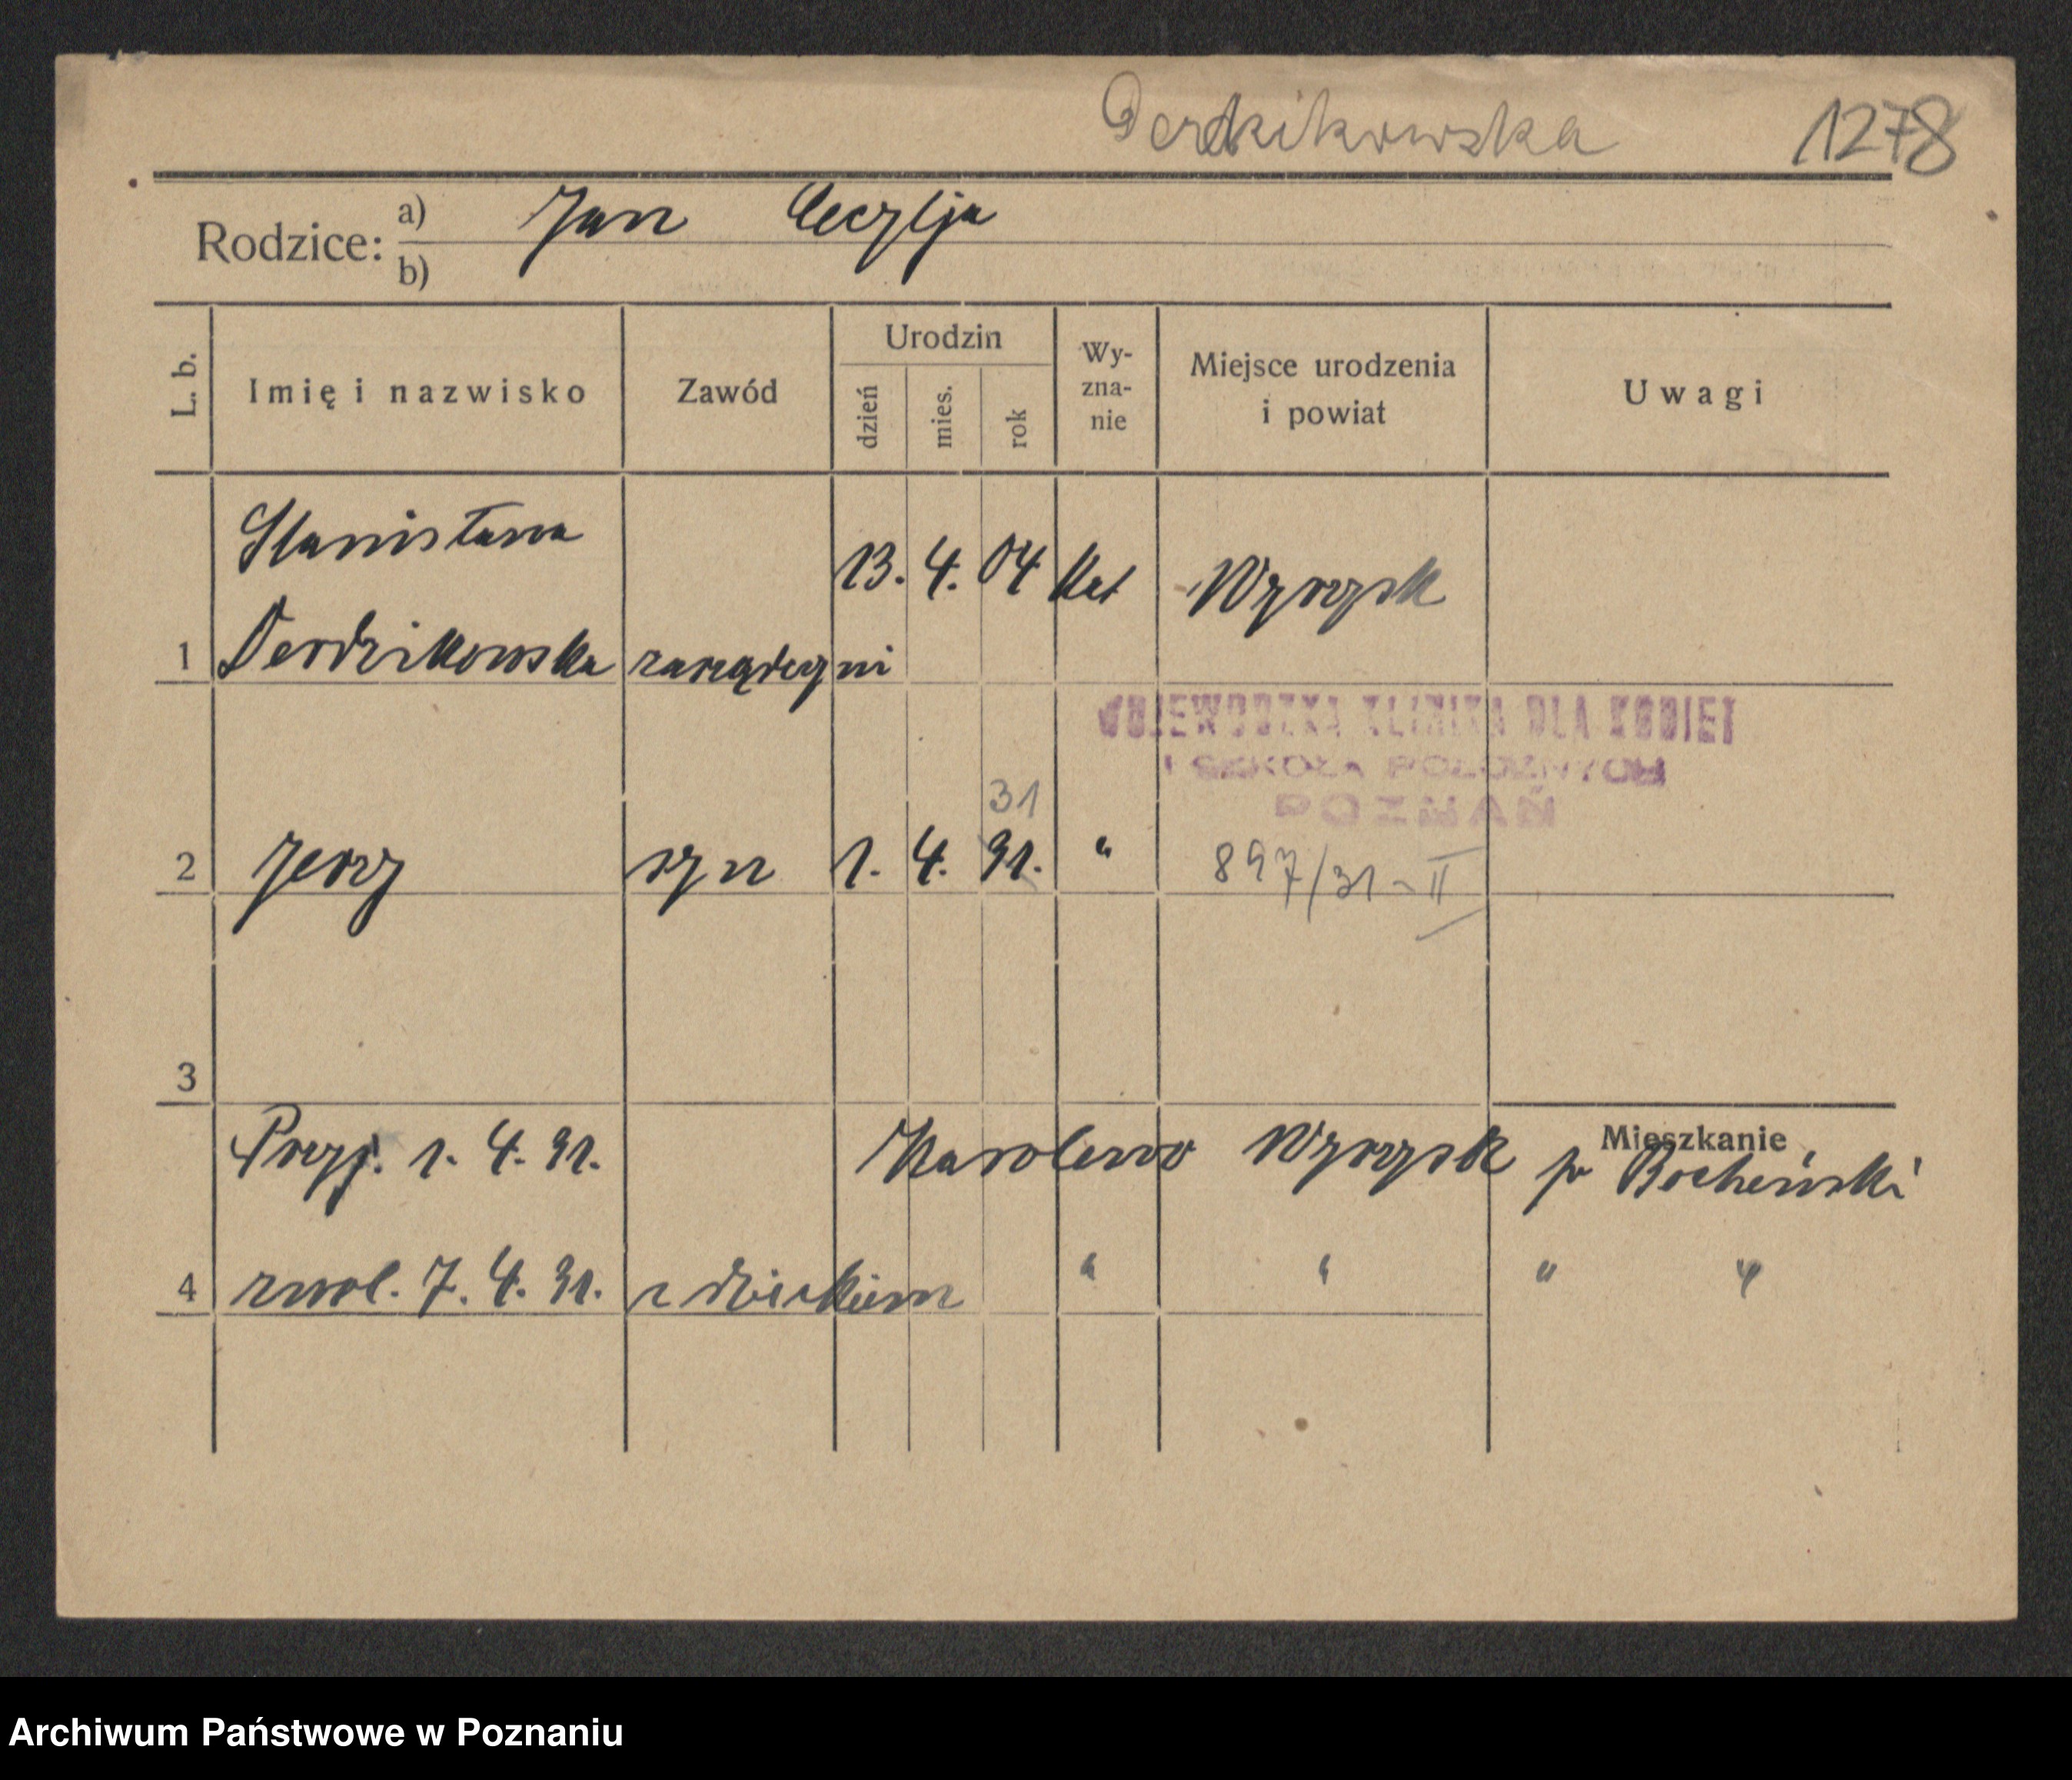 Derdzikowska 1278
Rodzice: a) Jan Cecylja
b)
L. b. Imię i nazwisko Zawód Urodzin dzień mies. rok Wy-zna-nie Miejsce urodzenia i powiat Uwagi
Stanisława
13. 4. 04 kat Wyrzysk
1 Derdzikowska
WOJEWÓDZKA KLINIKA DLA KOBIET
I SZKOŁA POŁOŻNYCH
POZNAŃ
31
2 Jerzy syn 1. 4. 31. "
897/31-II
3
Mieszkanie
Przyj. 1. 4. 31. Karolewo Wyrzysk p Bocheński
4 zwol. 7. 4. 31. z dzieckiem " " " "
Archiwum Państwowe w Poznaniu